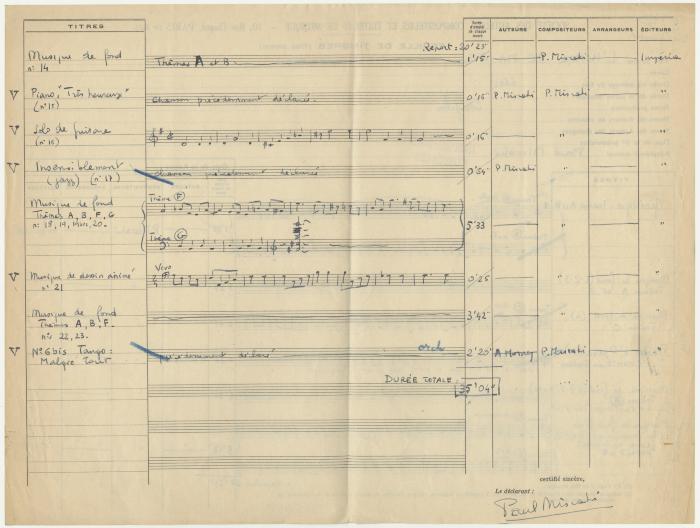 TITRES
Durée
AUTEURS COMPOSITEURS ARRANGEURS ÉDITEURS
Report: 20'25
Musique de fond
n° 14
Thèmes A et B
1'15"
P. Misraki
Impéria
V Piano, "Très heureux"
(n° 15)
Chanson précédemment déclaré.
0'15
P. Misraki P. Misraki "
V Solo de guitare
(n° 16)
0'16
" "
V Insensiblement
(jazz) (n° 17)
Chanson précédemment déclaré
0'54
P. Misraki " "
Musique de fond
Thêmes A, B, F, G
n° 18, 19, 20.
Thème F
Thème G
5'33
" "
V Musique de dessin animé
n° 21
Vivo
0'25
" "
Musique de fond
Thèmes A, B, F.
n° 22, 23.
3'42
" "
V N° 6 bis Tango:
Malgré tout
précédemment déclaré
orch
2'20"
A. Hornez P. Misraki "
DURÉE TOTALE:
35'04"
certifié sincère,
Le déclarant:
Paul Misraki